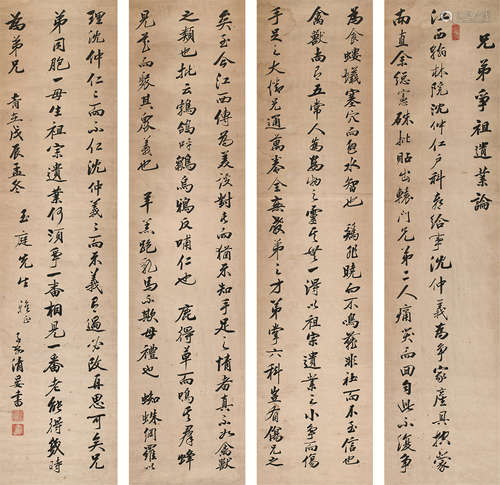 兄弟爭祖遺業論
江西翰林院沈仲仁戶科都給事沈仲義為爭家產具控蒙
南直余總憲硃批貼出轅門兄弟二人痛哭而回自此不復爭
為食螻蟻塞穴而避水智也 雞非曉而不鳴燕非社而不至信也
禽獸尚有五常人為萬物之靈豈無一得以祖宗遺業之小爭而傷
手足之大情兄通萬卷全無教弟之才弟掌六科豈有傷兄之
矣至今江西傳為美談對而猶不知手足之情者真不如禽獸
之類也批云鵓鴿呼雛烏鴉反哺仁也 鹿得草而鳴其群蜂
見花而聚其眾義也 羊羔跪乳馬不欺母禮也 蜘蛛網羅以
理沈仲仁仁而不仁沈仲義義而不義有過必改再思可矣兄
弟同胞一母生祖宗遺業何須爭一番相見一番老能得幾時
為弟兄 戊辰孟冬 玉庭先生雅正 書